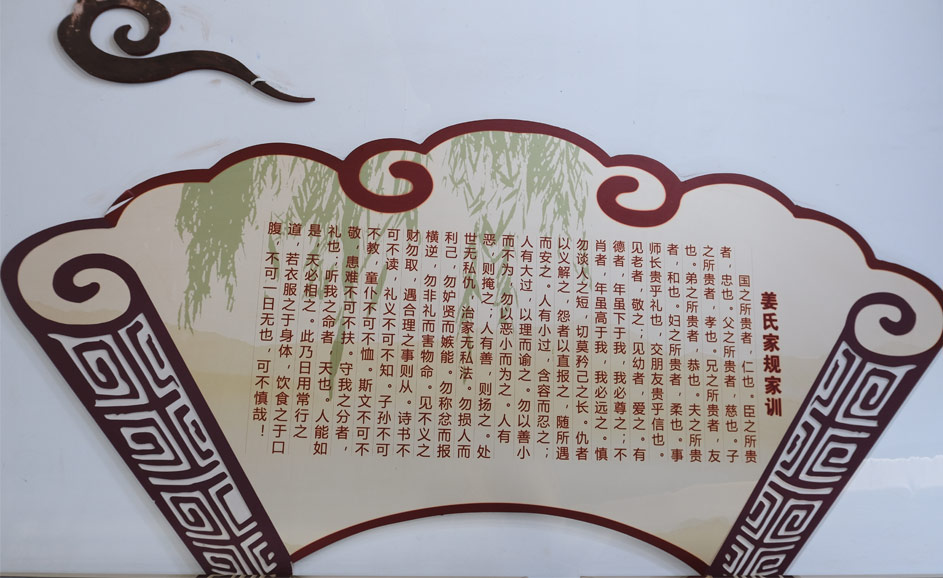 姜氏家规家训
国之所贵者，仁也。臣之所贵
者，忠也。父之所贵者，慈也。子
之所贵者，孝也。兄之所贵者，友
也。弟之所贵者，恭也。夫之所贵
者，和也。妇之所贵者，柔也。事
师长贵乎礼也，交朋友贵乎信也。
见老者，敬之；见幼者，爱之。有
德者，年虽下于我，我必尊之；不
肖者，年虽高于我，我必远之。慎
勿谈人之短，切莫矜己之长。仇者
以义解之，怨者以直报之，随所遇
而安之。人有小过，含容而忍之；
人有大过，以理而谕之。勿以善小
而不为，勿以恶小而为之。人有
恶，则掩之；人有善，则扬之。处
世无私仇，治家无私法。勿损人而
利己，勿妒贤而嫉能。勿称忿而报
横逆，勿非礼而害物命。见不义之
财勿取，遇合理之事则从。诗书不
可不读，礼义不可不知。子孙不可
不教，童仆不可不恤。斯文不可不
敬，患难不可不扶。守我之分者，
礼也；听我之命者，天也。人能如
是，天必相之。此乃日用常行之
道，若衣服之于身体，饮食之于口
腹，不可一日无也，可不慎哉！